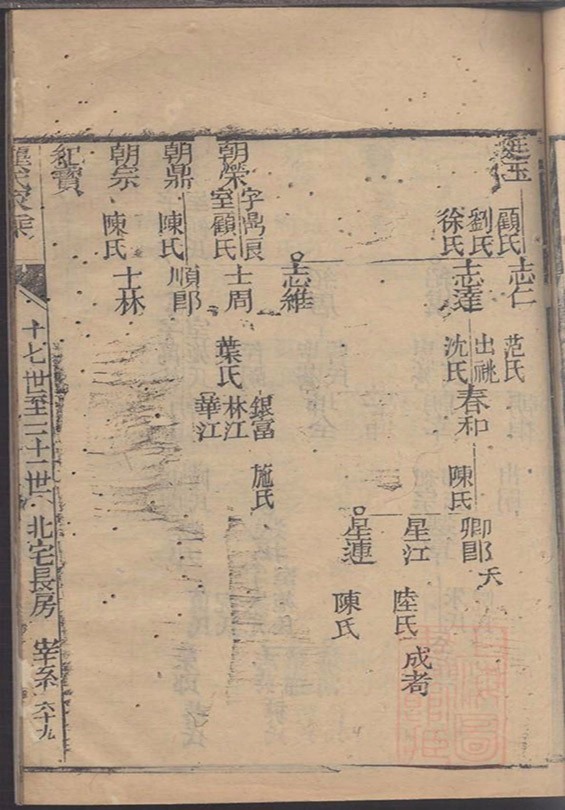 廷玉
顧氏
劉氏
徐氏
志仁
范氏
志達
出祧
沈氏
春和
陳氏
卿郎
夭
星江
陸氏
成耇
星連
陳氏
志維
朝榮
字鼎辰
室顧氏
士周
葉氏
銀富
施氏
林江
華江
朝鼎
陳氏
順郎
朝宗
陳氏
士林
紀寶
十七世至二十一世
北宅長房
宰系
六十九